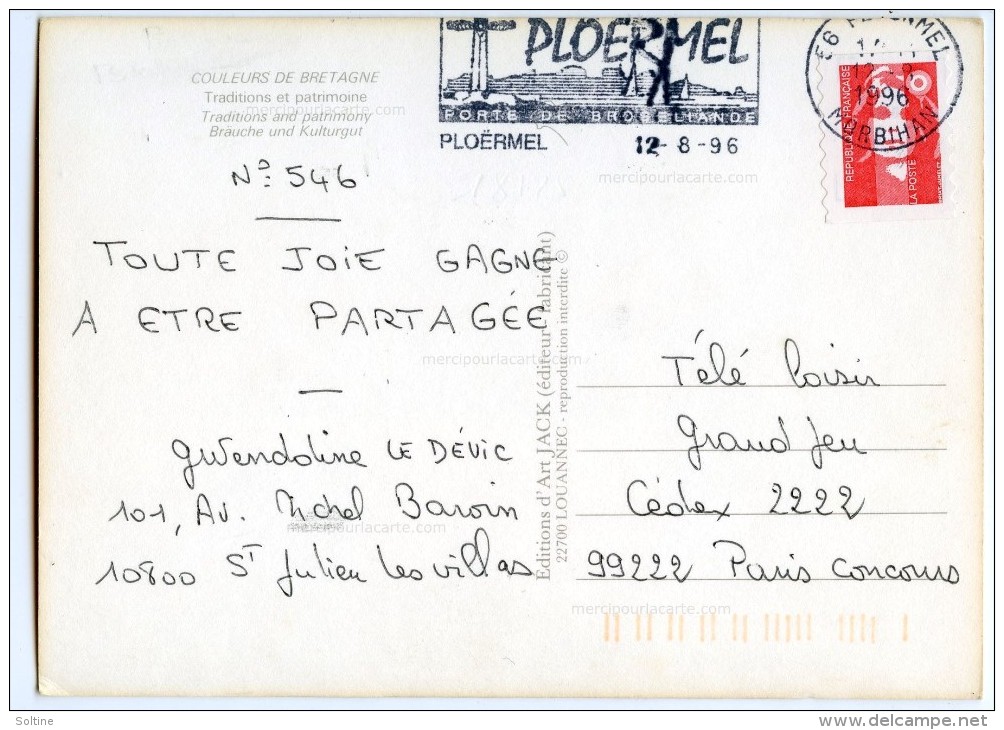 COULEURS DE BRETAGNE
Traditions et patrimoine
Traditions and patrimony
Bräuche und Kulturgut
PLOERMEL
PORTE DE BROCELIANDE
PLOËRMEL 12-8-96
56 PLOERMEL
1996
MORBIHAN
REPUBLIQUE FRANÇAISE
LA POSTE
No 546
TOUTE JOIE GAGNE
A ETRE PARTAGÉE
Gwendoline LE DÉVIC
101, Av. Michel Baroin
10800 ST Julien Les villas
Editions d'Art JACK (éditeur - fabricant)
22700 LOUANNEC - reproduction interdite ©
Télé Loisir
Grand Jeu
Cédex 2222
99222 Paris Concours
mercipourlacarte.com
mercipourlacarte.com
mercipourlacarte.com
mercipourlacarte.com
mercipourlacarte.com
mercipourlacarte.com
mercipourlacarte.com
Soltine
www.delcampe.net